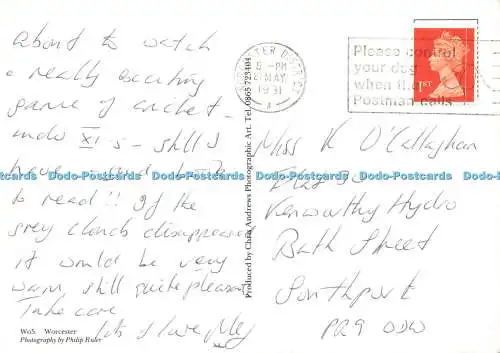 About to watch
a really exciting
game of cricket -
under XI's - still I
have a good
to read!! If the
grey clouds disappeared
it would be very
warm, still quite pleasant
Take care
lots of love Meg
Wo5. Worcester
Photography by Philip Ruler
Produced by Chris Andrews Photographic Art. Tel. 0865 723404
5 - PM
MAY
1931
A
Please control
your dog
when the
Postman calls
1ST
Miss K O'Callaghan
Flat 30
Kenworthy Hydro
Bath Street
Southport
PR9 0DW
Dodo-Postcards Dodo-Postcards Dodo-Postcards Dodo-Postcards Dodo-Postcards